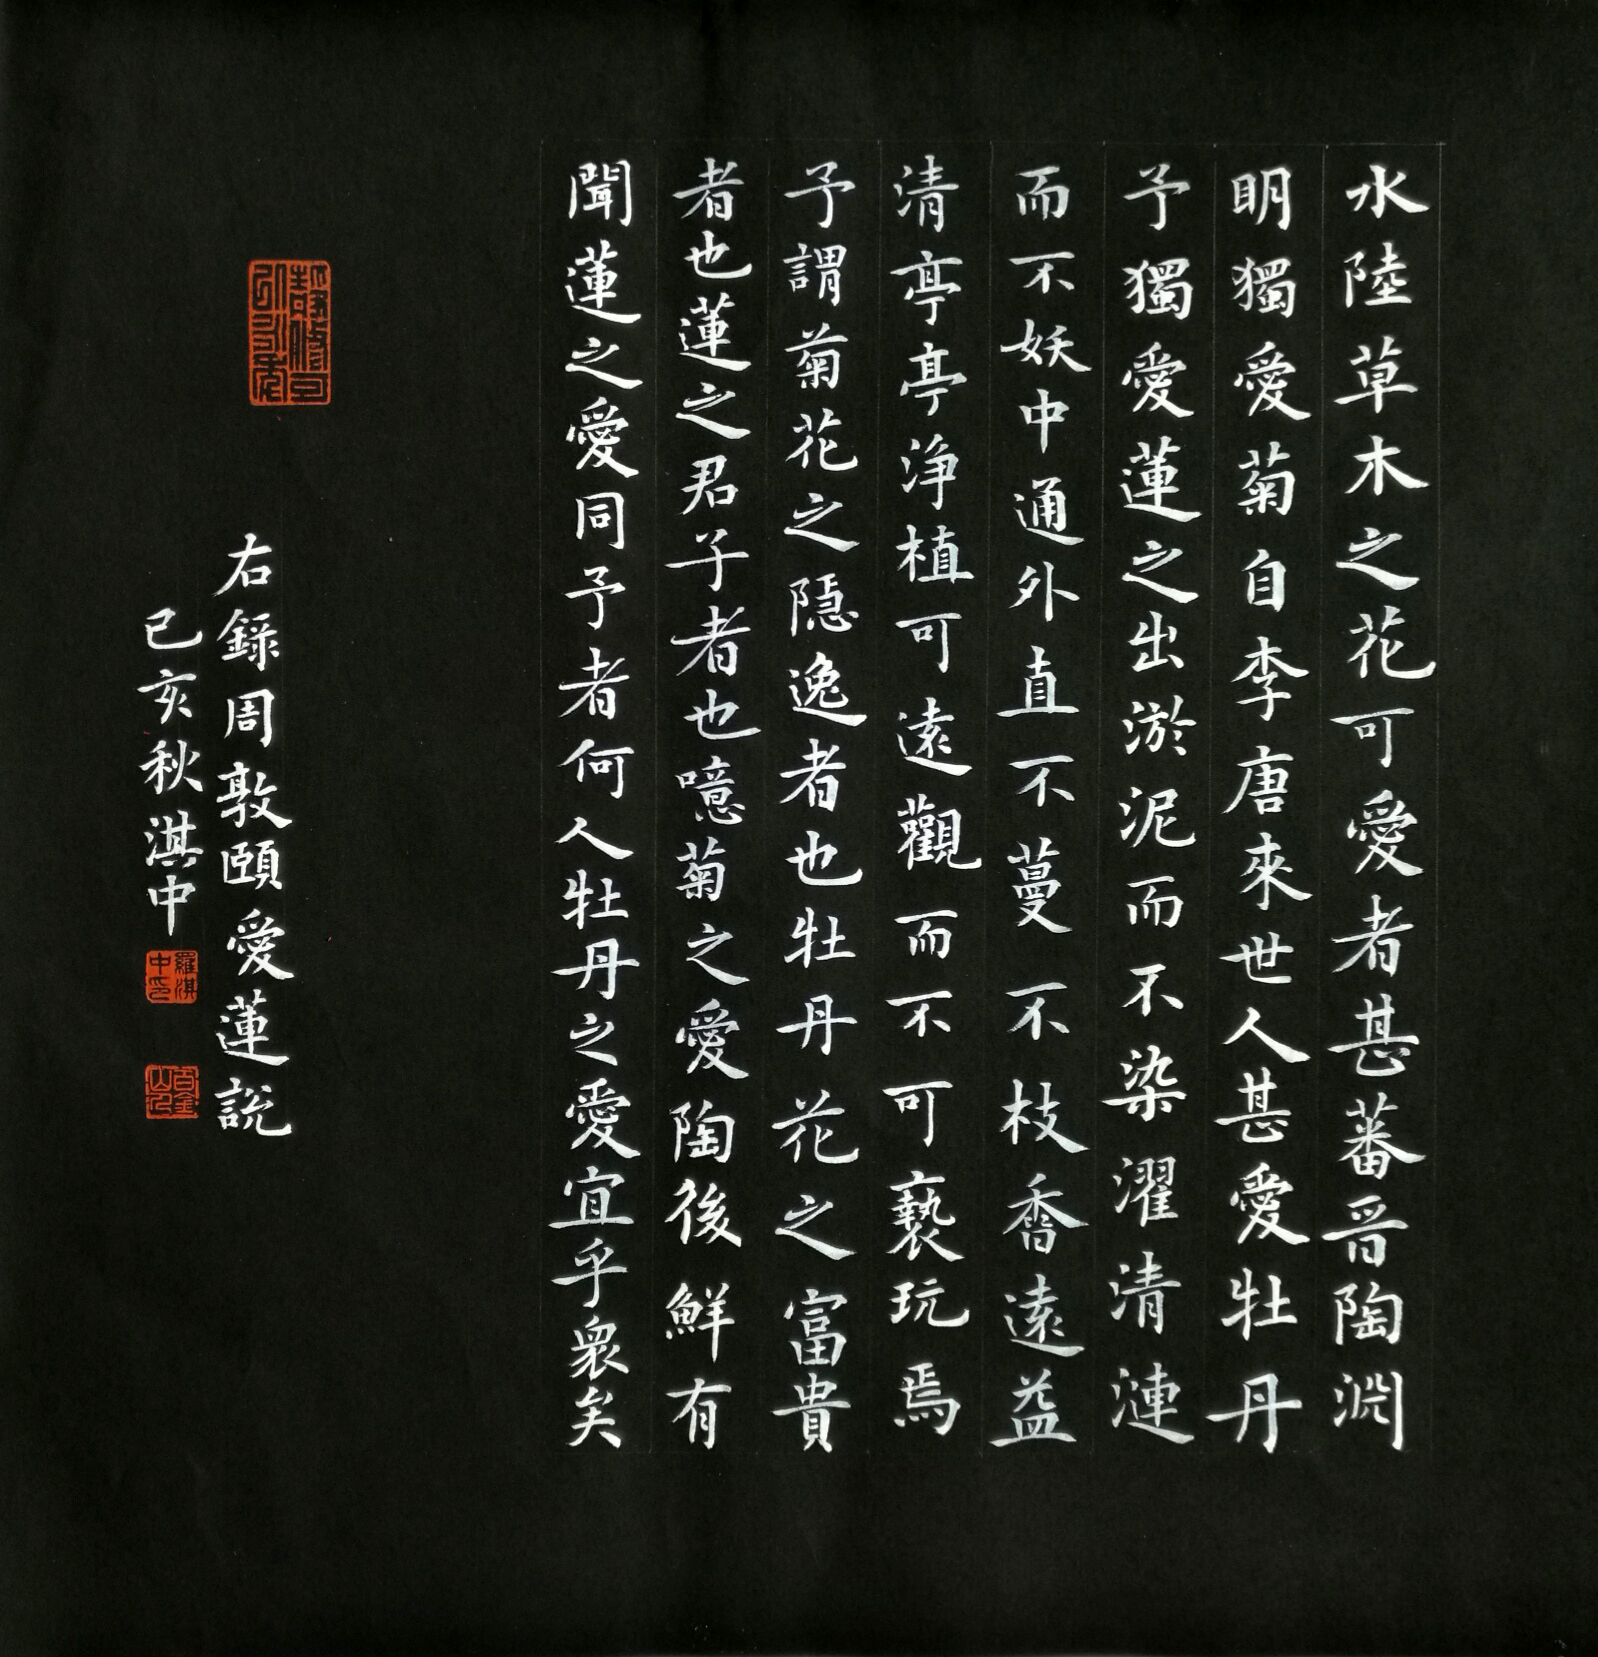 水陸草木之花可愛者甚蕃晉陶淵
明獨愛菊自李唐來世人甚愛牡丹
予獨愛蓮之出淤泥而不染濯清漣
而不妖中通外直不蔓不枝香遠益
清亭亭淨植可遠觀而不可褻玩焉
予謂菊花之隱逸者也牡丹花之富貴
者也蓮之君子者也噫菊之愛陶後鮮有
聞蓮之愛同予者何人牡丹之愛宜乎衆矣
右錄周敦頤愛蓮說
己亥秋淇中
羅淇
中印